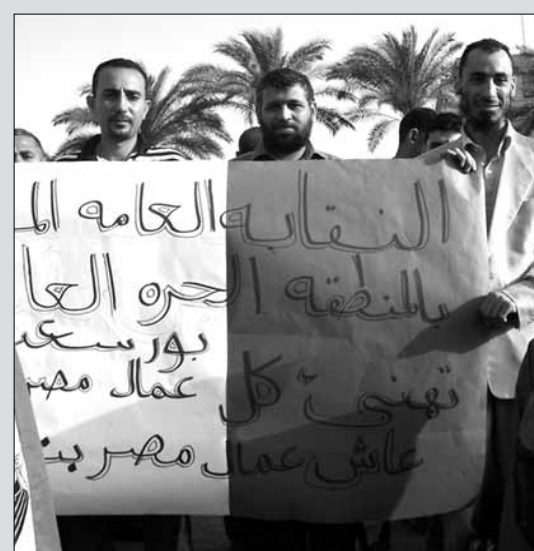 النقابه العامه الم
بالمنطقه الحره العا
بور سعي
تهنئ كل عمال مصر
عاش عمال مصر بـ